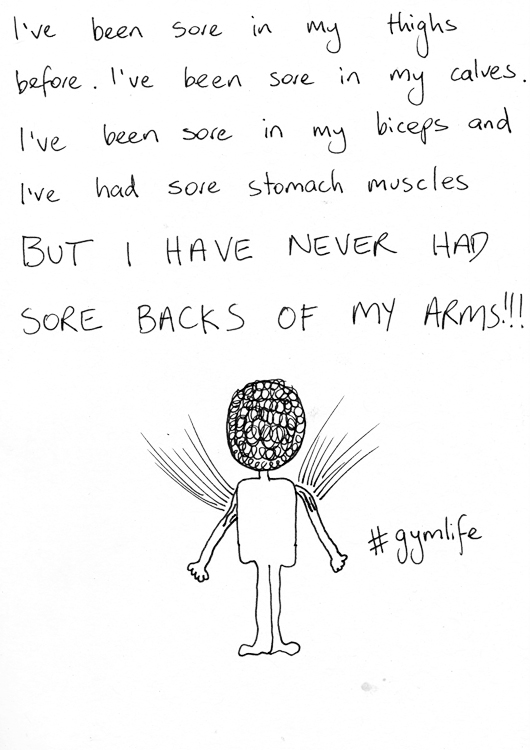 I've been sore in my thighs
before. I've been sore in my calves.
I've been sore in my biceps and
I've had sore stomach muscles
BUT I HAVE NEVER HAD
SORE BACKS OF MY ARMS!!!
#gymlife